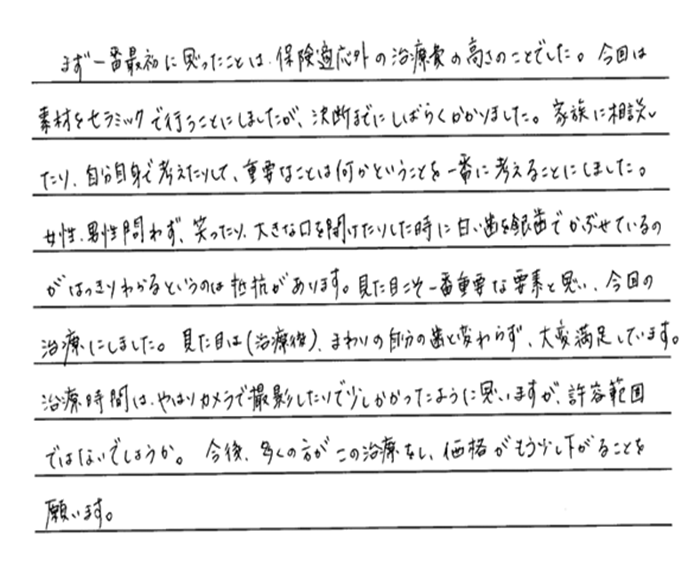 まず一番最初に思ったことは、保険適応外の治療費の高さのことでした。今回は
素材をセラミックで行うことにしましたが、決断までにしばらくかかりました。家族に相談し
たり、自分自身で考えたりして、重要なことは何かということを一番に考えることにしました。
女性、男性問わず、笑ったり、大きな口を開けたりした時に白い歯を銀歯でかぶせているの
がはっきりわかるというのは抵抗があります。見た目こそ一番重要な要素と思い、今回の
治療にしました。見た目は(治療後)、まわりの自分の歯と変わらず、大変満足しています。
治療時間は、やはりカメラで撮影したりで少しかかったように思いますが、許容範囲
ではないでしょうか。今後、多くの方がこの治療をし、価格がもう少し下がることを
願います。